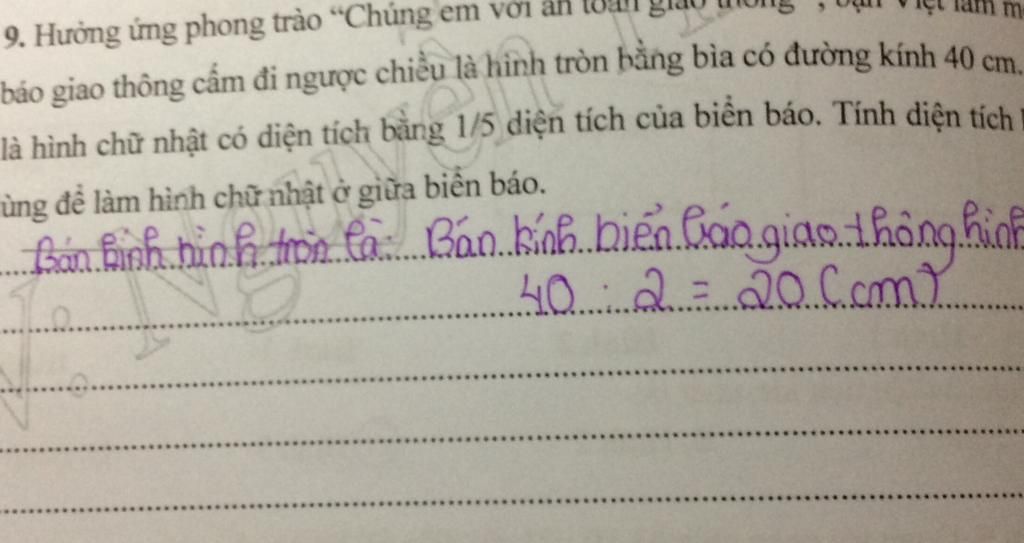 9. Hưởng ứng phong trào “Chúng em với an toàn giao thông”, bạn Việt làm
báo giao thông cấm đi ngược chiều là hình tròn bằng bìa có đường kính 40 cm.
là hình chữ nhật có diện tích bằng 1/5 diện tích của biển báo. Tính diện tích
ùng để làm hình chữ nhật ở giữa biển báo.
Bán kình hình tròn là: Bán kính biển báo giao thông hình
40 : 2 = 20 (cm)